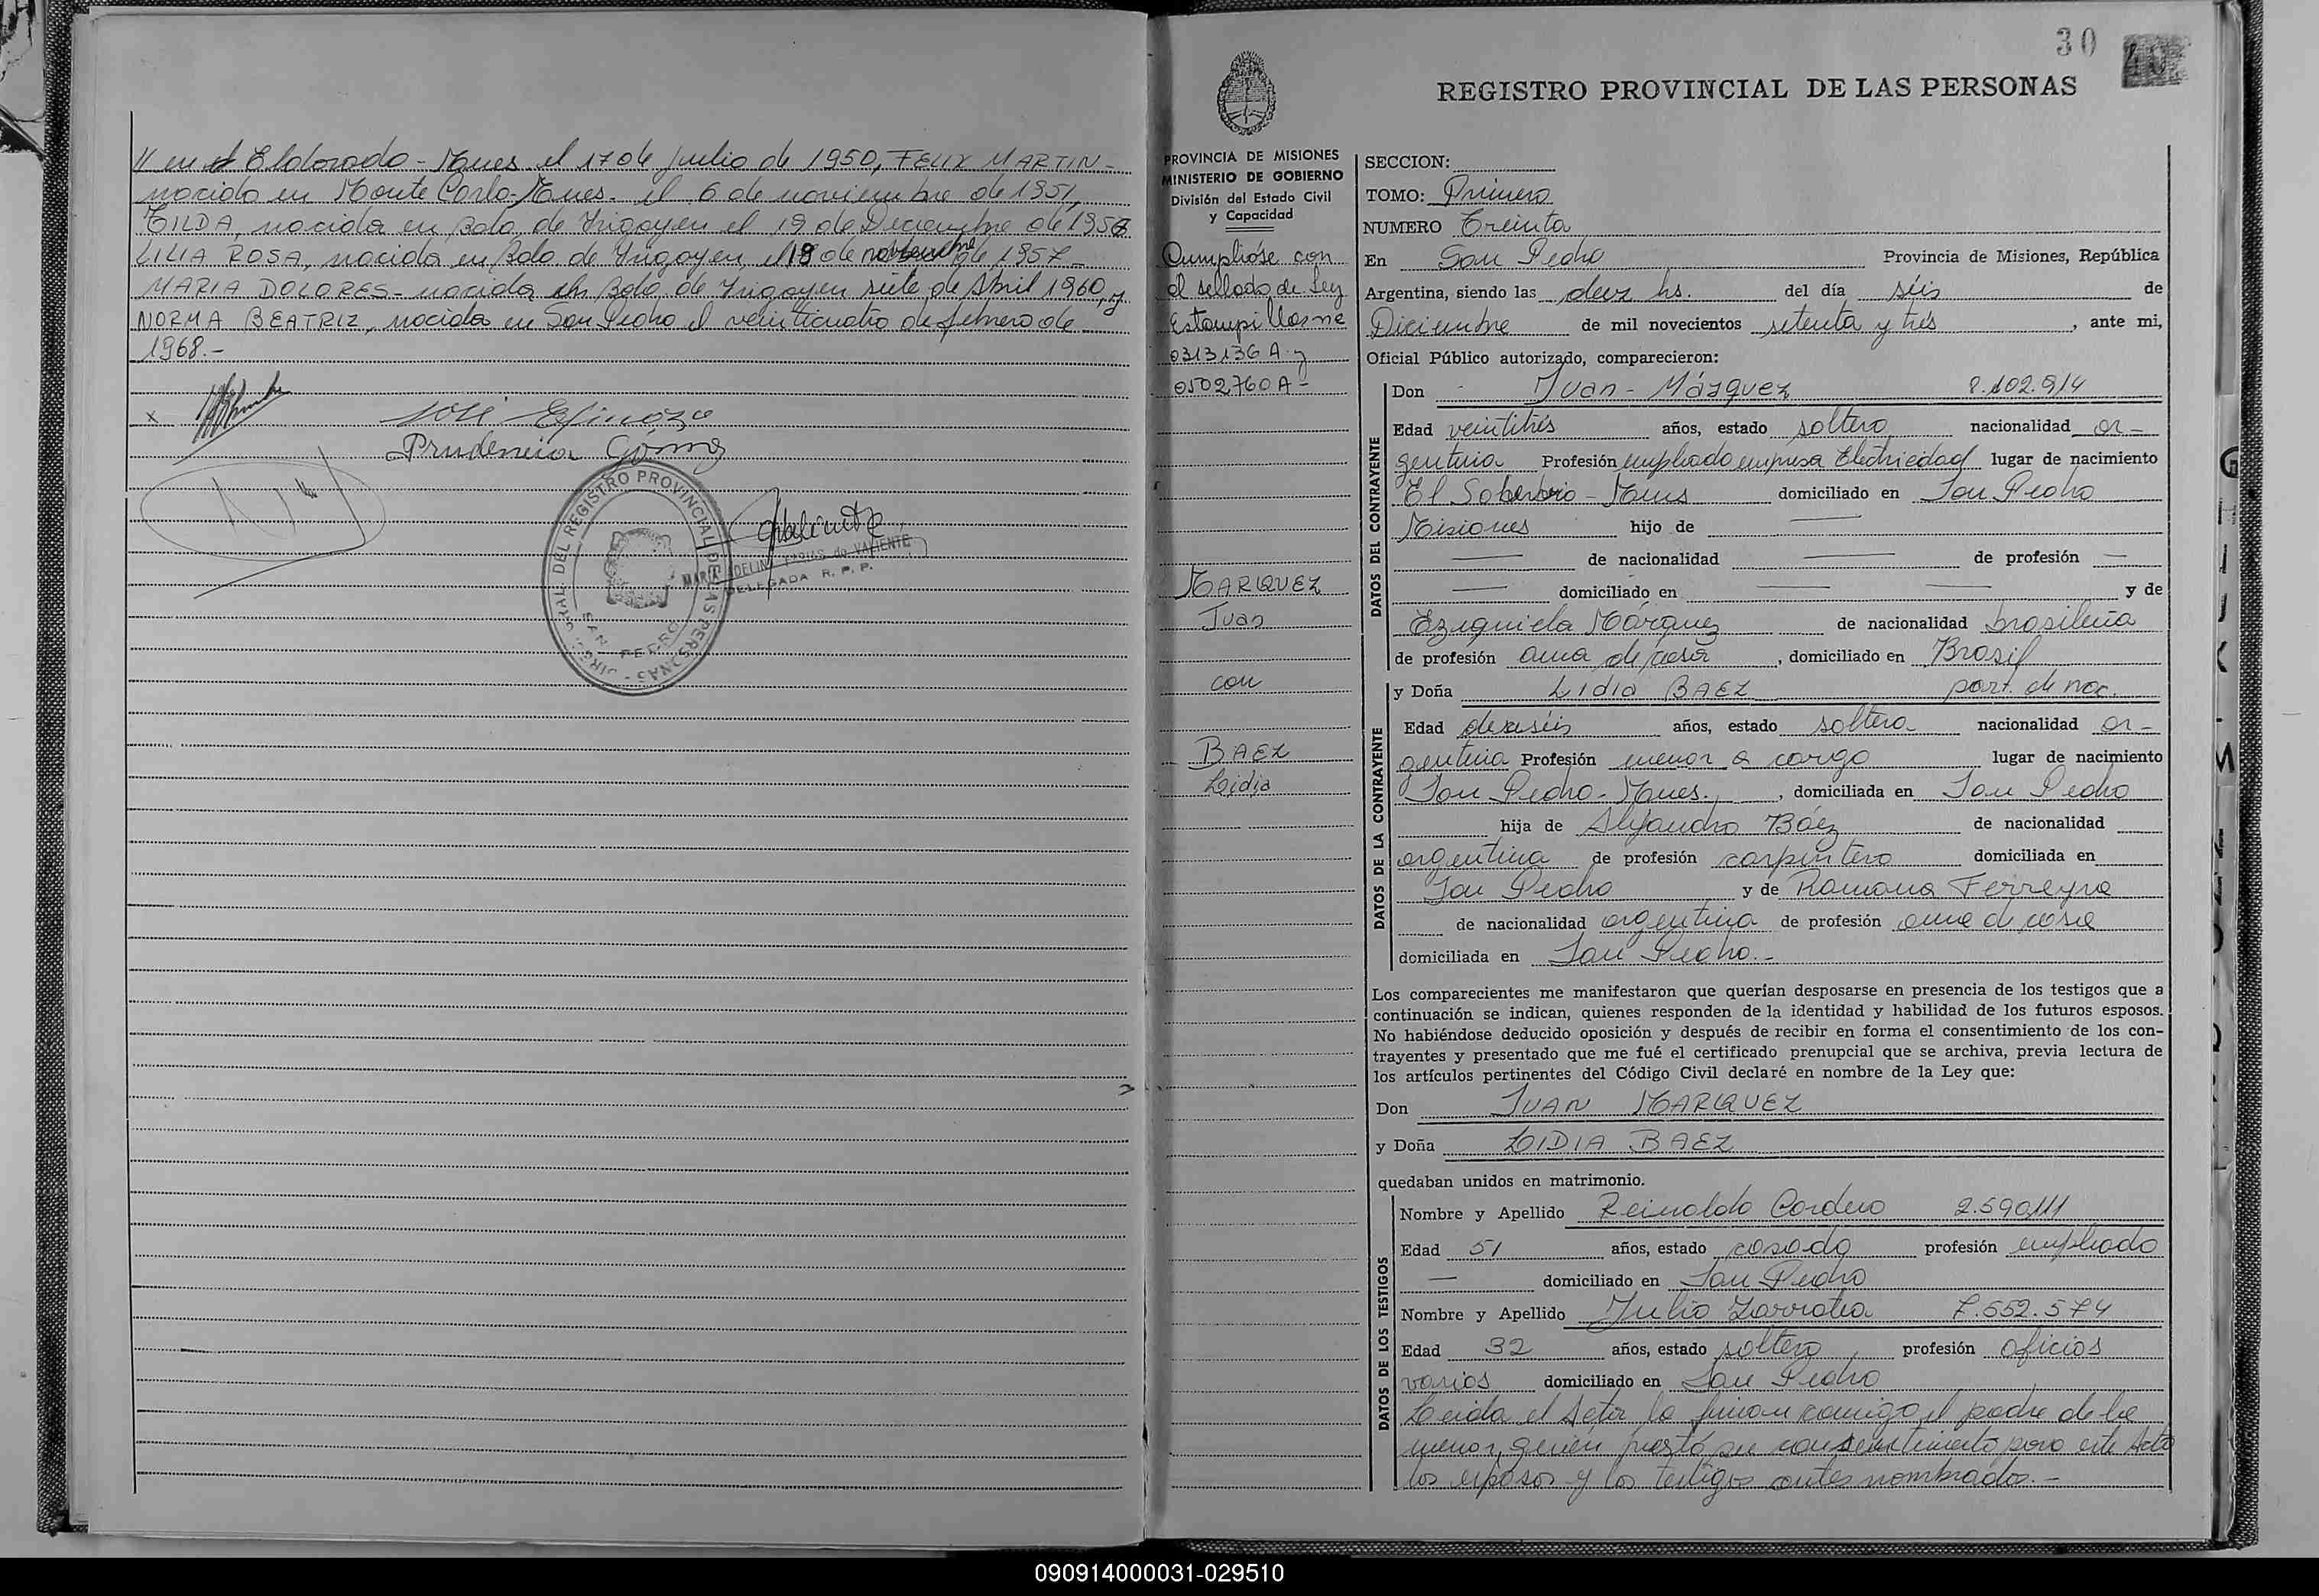 // en el Eldorado - Mnes. el 17 de julio de 1950, FELIX MARTIN -
nacido en Monte Carlo - Mnes. el 6 de noviembre de 1951,
TILDA, nacida en Bdo. de Irigoyen el 19 de Diciembre de 1956
LILIA ROSA, nacida en Bdo de Irigoyen, el 18 de noviembre de 1957 -
MARIA DOLORES - nacida en Bdo. de Irigoyen siete de Abril 1960, y
NORMA BEATRIZ, nacida en San Pedro el veinticuatro de febrero de
1968.-
x
José Espinoza
Prudencia Gómez
DIREC. GRAL. DEL REGISTRO PROVINCIAL DE LAS PERSONAS -
SAN PEDRO
MARIA ADELINA FARIAS de VALIENTE
DELEGADA R. P. P.
30
40
REGISTRO PROVINCIAL DE LAS PERSONAS
PROVINCIA DE MISIONES
MINISTERIO DE GOBIERNO
División del Estado Civil
y Capacidad
Cumplióse con
el sellado de Ley
Estampillas nº
0313136 A. y
0502760 A -
MARQUEZ
Juan
con
BAEZ
Lidia
SECCION:
TOMO: Primero
NUMERO Treinta
En San Pedro Provincia de Misiones, República
Argentina, siendo las diez hs. del día séis de
Diciembre de mil novecientos setenta y trés, ante mi,
Oficial Público autorizado, comparecieron:
DATOS DEL CONTRAYENTE
Don Juan - Márquez 8.102.914
Edad veintitrés años, estado soltero nacionalidad ar-
gentina Profesión empleado empresa Electricidad lugar de nacimiento
El Soberbio - Mnes domiciliado en San Pedro
Misiones hijo de —
— de nacionalidad — de profesión —
— domiciliado en — — y de
Ezequiela Márquez de nacionalidad brasileña
de profesión ama de casa, domiciliado en Brasil
DATOS DE LA CONTRAYENTE
y Doña Lidia BAEZ part. de nac.
Edad dieciséis años, estado soltera nacionalidad ar-
gentina Profesión menor a cargo lugar de nacimiento
San Pedro - Mnes., domiciliada en San Pedro
hija de Alejandro Báez de nacionalidad
argentina de profesión carpintero domiciliada en
San Pedro y de Ramona Ferreyra
de nacionalidad argentina de profesión ama de casa
domiciliada en San Pedro.-
Los comparecientes me manifestaron que querían desposarse en presencia de los testigos que a
continuación se indican, quienes responden de la identidad y habilidad de los futuros esposos.
No habiéndose deducido oposición y después de recibir en forma el consentimiento de los con-
trayentes y presentado que me fué el certificado prenupcial que se archiva, previa lectura de
los artículos pertinentes del Código Civil declaré en nombre de la Ley que:
Don JUAN MARQUEZ
y Doña LIDIA BAEZ
quedaban unidos en matrimonio.
DATOS DE LOS TESTIGOS
Nombre y Apellido Reinaldo Cordero 2.590.111
Edad 51 años, estado casado profesión empleado
— domiciliado en San Pedro
Nombre y Apellido Julio Zarratea 7.652.574
Edad 32 años, estado soltero profesión oficios
varios domiciliado en San Pedro
Leída el Acta la firman conmigo, el padre de la
menor, quién prestó su consentimiento para este Acto
los esposos y los testigos antes nombrados.-
090914000031-029510